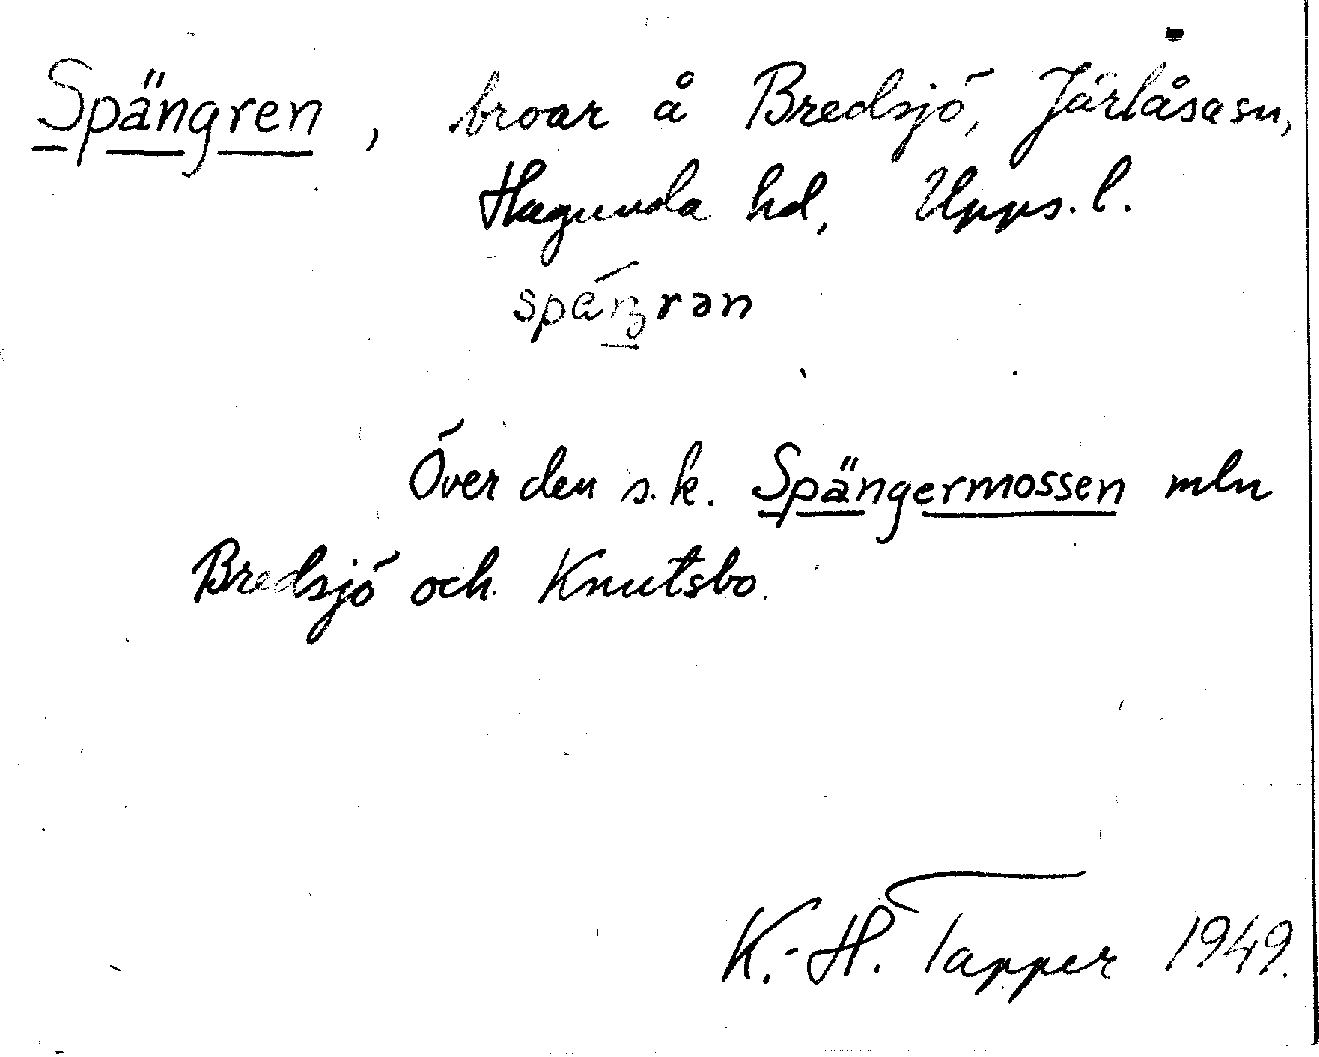 Spängren, broar å Bredsjö, Järlåsasn,
Hagunda hd, Upps. l.
späŋrən
Över den s.k. Spängermossen mln
Bredsjö och Knutsbo.
K.-H. Tapper 1949.